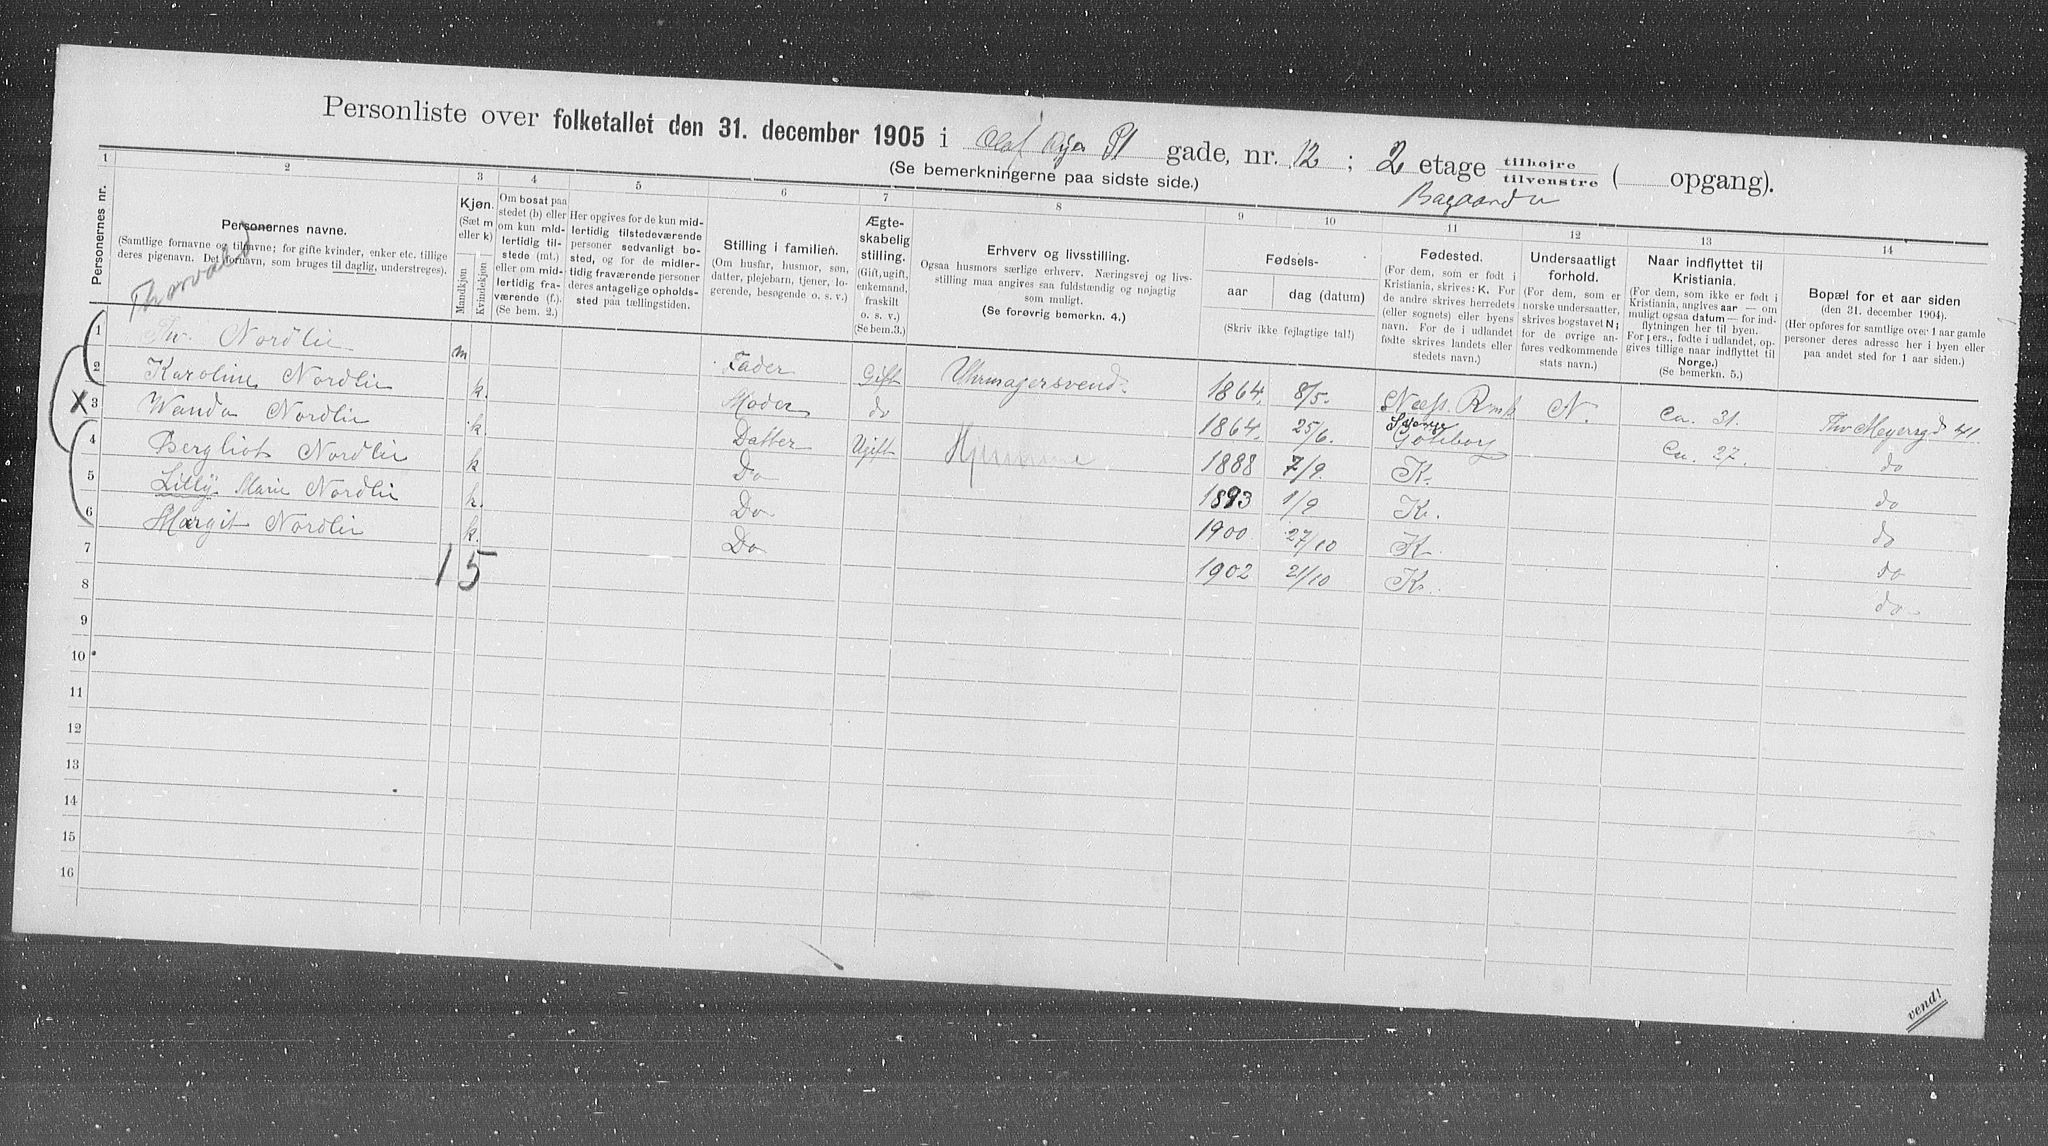 Personliste over folketallet den 31. december 1905 i Olaf Ryes Pl gade, nr. 12 ; 2 etage tilhøire tilvenstre ( opgang).
(Se bemerkningerne paa sidste side.)
Bagaarden
1 2 3 4 5 6 7 8 9 10 11 12 13 14
Personernes nr.
Personernes navne.
(Samtlige fornavne og tilnavne; for gifte kvinder, enker etc. tillige
deres pigenavn. Det fornavn, som bruges til daglig, understreges).
Thorvald
Kjøn.
(Sæt m
eller k)
Mandkjøn
Kvindekjøn
Om bosat paa
stedet (b) eller
om kun mid-
lertidig til-
stede (mt.)
eller om mid-
lertidig fra-
værende (f.).
(Se bem. 2.)
Her opgives for de kun mid-
lertidig tilstedeværende
personer sedvanligt bo-
sted, og for de midler-
tidig fraværende personer
deres antagelige opholds-
sted paa tællingstiden.
Stilling i familien.
(Om husfar, husmor, søn,
datter, plejebarn, tjener, lo-
gerende, besøgende o. s. v.)
Ægte-
skabelig
stilling.
(Gift, ugift,
enkemand,
fraskilt
o. s. v.)
(Se bem. 3.)
Erhverv og livsstilling.
Ogsaa husmors særlige erhverv. Næringsvej og livs-
stilling maa angives saa fuldstændig og nøjagtig
som muligt.
(Se forøvrig bemerkn. 4.)
Fødsels-
aar dag (datum)
(Skriv ikke fejlagtige tal!)
Fødested.
(For dem, som er født i
Kristiania, skrives: K. For
de andre skrives herredets
(eller sognets) eller byens
navn. For de i udlandet
fødte skrives landets eller
stedets navn.)
Undersaatligt
forhold.
(For dem, som er
norske undersaatter,
skrives bogstavet N;
for de øvrige an-
føres vedkommende
stats navn.)
Naar indflyttet til
Kristiania.
(For dem, som ikke er født i
Kristiania, angives aar — om
muligt ogsaa datum — for ind-
flytningen her til byen.
For pers., fødte i udlandet, op-
gives tillige naar indflyttet til
Norge.)
(Se bemerkn. 5.)
Bopæl for et aar siden
(den 31. december 1904).
(Her opføres for samtlige over 1 aar gamle
personer deres adresse her i byen eller
paa andet sted for 1 aar siden.)
1 Th. Nordlie m Fader Gift Uhrmagersvend. 1864. 8/5. Næs. Rmk N. Ca. 31. Thv Meyersgd 41
2 Karoline Nordlie k. Moder do 1864. 25/6. Göteborg Ca. 27. do
X 3 Wanda Nordlie k. Datter Ugift Hjemme 1888 7/9. K. do
4 Bergliot Nordlie k Do 1893 1/9 K. do
5 Lilly Marie Nordlie k. Do 1900 27/10 K. do
6 Margit Nordlie k. Do 1902 21/10 K. do
7 1 5
8
9
10
11
12
13
14
15
16
vend!